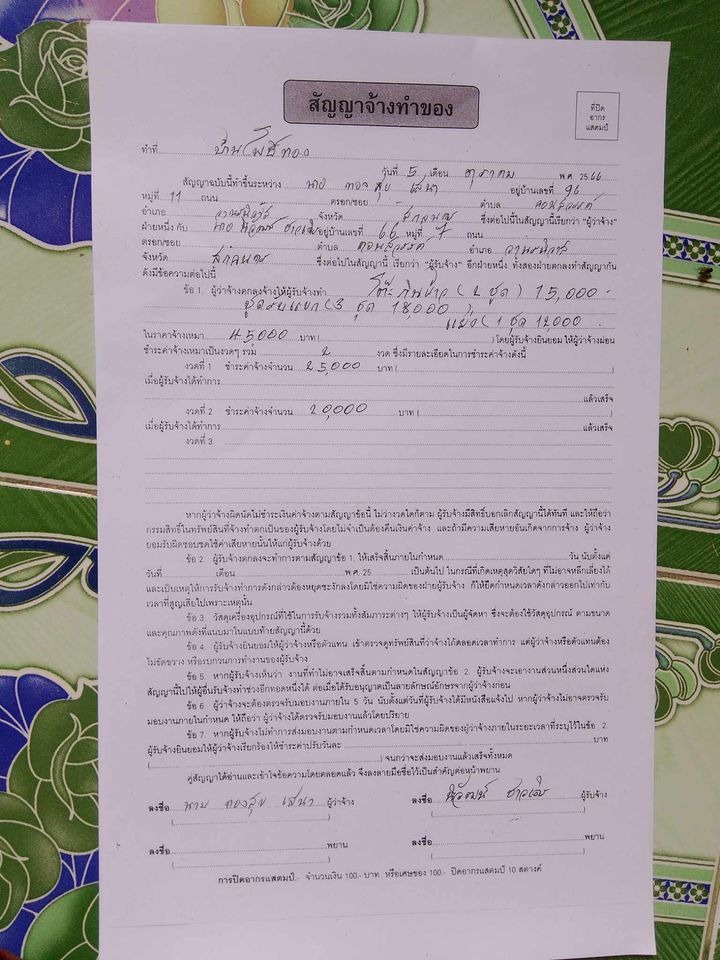 สัญญาจ้างทำของ
ที่ปิด
อากร
แสตมป์
ทำที่ บ้านโพธิ์ทอง
วันที่ 5 เดือน ตุลาคม พ.ศ. 2566
สัญญาฉบับนี้ทำขึ้นระหว่าง นาย ทองสุข เสนา อยู่บ้านเลขที่ 96
หมู่ที่ 11 ถนน ตรอก/ซอย ตำบล คอนสวรรค์
อำเภอ วานรนิวาส จังหวัด สกลนคร ซึ่งต่อไปนี้ในสัญญานี้เรียกว่า "ผู้ว่าจ้าง"
ฝ่ายหนึ่ง กับ นาย นิวัฒน์ อยู่บ้านเลขที่ 66 หมู่ที่ 7 ถนน
ตรอก/ซอย ตำบล คอนสวรรค์ อำเภอ วานรนิวาส
จังหวัด สกลนคร ซึ่งต่อไปในสัญญานี้ เรียกว่า "ผู้รับจ้าง" อีกฝ่ายหนึ่ง ทั้งสองฝ่ายตกลงทำสัญญากัน
ดังมีข้อความต่อไปนี้
ข้อ 1. ผู้ว่าจ้างตกลงจ้างให้ผู้รับจ้างทำ โต๊ะกินข้าว (2 ชุด) 15,000
ชุดรับแขก (3 ชุด 18,000) (1 ชุด 12,000
ในราคาจ้างเหมา 45,000 บาท ( ) โดยผู้รับจ้างยินยอม ให้ผู้ว่าจ้างผ่อน
ชำระค่าจ้างเหมาเป็นงวดๆ รวม 2 งวด ซึ่งมีรายละเอียดในการชำระค่าจ้างดังนี้
งวดที่ 1 ชำระค่าจ้างจำนวน 25,000 บาท ( )
เมื่อผู้รับจ้างได้ทำการ
แล้วเสร็จ
งวดที่ 2 ชำระค่าจ้างจำนวน 20,000 บาท ( )
เมื่อผู้รับจ้างได้ทำการ แล้วเสร็จ
งวดที่ 3
หากผู้ว่าจ้างผิดนัดไม่ชำระเงินค่าจ้างตามสัญญาข้อนี้ ไม่ว่างวดใดก็ตาม ผู้รับจ้างมีสิทธิ์บอกเลิกสัญญานี้ได้ทันที และให้ถือว่า
กรรมสิทธิ์ในทรัพย์สินที่จ้างทำตกเป็นของผู้รับจ้างโดยไม่จำเป็นต้องคืนเงินค่าจ้าง และถ้ามีความเสียหายอันเกิดจากการจ้าง ผู้ว่าจ้าง
ยอมรับผิดชอบชดใช้ค่าเสียหายนั้นให้แก่ผู้รับจ้างด้วย
ข้อ 2. ผู้รับจ้างตกลงจะทำการตามสัญญาข้อ 1. ให้เสร็จสิ้นภายในกำหนด วัน นับตั้งแต่
วันที่ เดือน พ.ศ. 25 เป็นต้นไป ในกรณีที่เกิดเหตุสุดวิสัยใดๆ ที่ไม่อาจหลีกเลี่ยงได้
และเป็นเหตุให้การรับจ้างทำการดังกล่าวต้องหยุดชะงักลงโดยมิใช่ความผิดของฝ่ายผู้รับจ้าง ก็ให้ยืดกำหนดเวลาดังกล่าวออกไปเท่ากับ
เวลาที่สูญเสียไปเพราะเหตุนั้น
ข้อ 3. วัสดุเครื่องอุปกรณ์ที่ใช้ในการรับจ้างรวมทั้งสัมภาระต่างๆ ให้ผู้รับจ้างเป็นผู้จัดหา ซึ่งจะต้องใช้วัสดุอุปกรณ์ ตามขนาด
และคุณภาพดังที่แนบมาในแบบท้ายสัญญานี้ด้วย
ข้อ 4. ผู้รับจ้างยินยอมให้ผู้ว่าจ้างหรือตัวแทน เข้าตรวจดูทรัพย์สินที่ว่าจ้างได้ตลอดเวลาทำการ แต่ผู้ว่าจ้างหรือตัวแทนต้อง
ไม่ขัดขวาง หรือรบกวนการทำงานของผู้รับจ้าง
ข้อ 5. หากผู้รับจ้างเห็นว่า งานที่ทำไม่อาจเสร็จสิ้นตามกำหนดในสัญญาข้อ 2. ผู้รับจ้างจะเอางานส่วนหนึ่งส่วนใดแห่ง
สัญญานี้ไปให้ผู้อื่นรับจ้างทำช่วงอีกทอดหนึ่งได้ ต่อเมื่อได้รับอนุญาตเป็นลายลักษณ์อักษรจากผู้ว่าจ้างก่อน
ข้อ 6. ผู้ว่าจ้างจะต้องตรวจรับมอบงานภายใน 5 วัน นับตั้งแต่วันที่ผู้รับจ้างได้มีหนังสือแจ้งไป หากผู้ว่าจ้างไม่อาจตรวจรับ
มอบงานภายในกำหนด ให้ถือว่า ผู้ว่าจ้างได้ตรวจรับมอบงานแล้วโดยปริยาย
ข้อ 7. หากผู้รับจ้างไม่ทำการส่งมอบงานตามกำหนดเวลาโดยมิใช่ความผิดของผู้ว่าจ้างภายในระยะเวลาที่ระบุไว้ในข้อ 2.
ผู้รับจ้างยินยอมให้ผู้ว่าจ้างเรียกร้องให้ชำระค่าปรับวันละ บาท
( ) จนกว่าจะส่งมอบงานแล้วเสร็จทั้งหมด
คู่สัญญาได้อ่านและเข้าใจข้อความโดยตลอดแล้ว จึงลงลายมือชื่อไว้เป็นสำคัญต่อหน้าพยาน
ลงชื่อ นาย ทองสุข เสนา ผู้ว่าจ้าง ลงชื่อ นิวัฒน์ ผู้รับจ้าง
( ) ( )
ลงชื่อ พยาน ลงชื่อ พยาน
( ) ( )
การปิดอากรแสตมป์.- จำนวนเงิน 100.- บาท หรือเศษของ 100.- ปิดอากรแสตมป์ 10 สตางค์